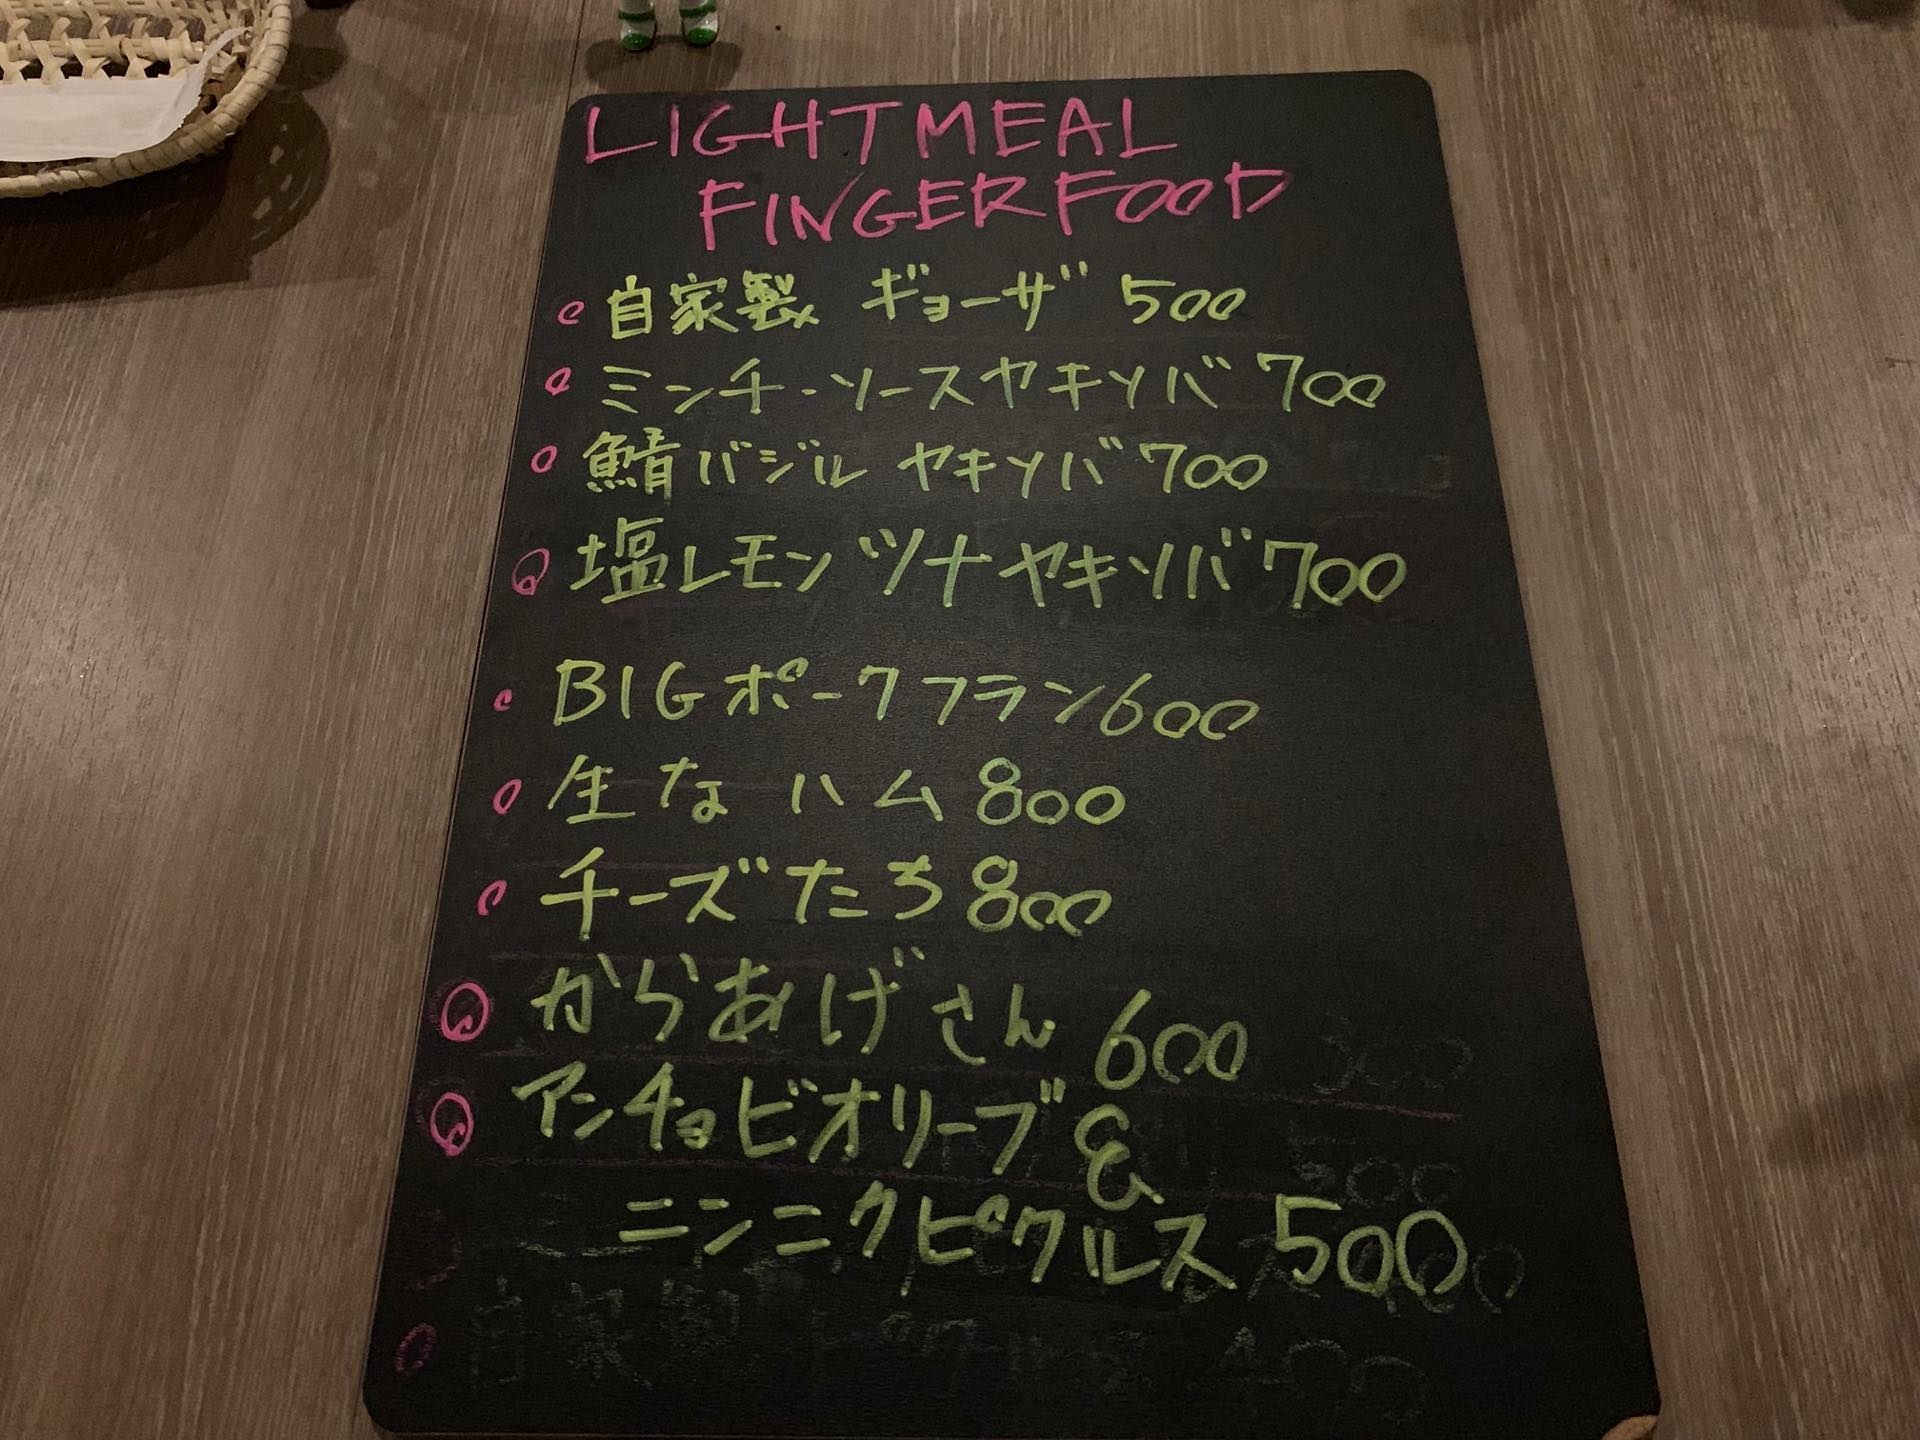 LIGHTMEAL
FINGERFOOD
自家製 ギョーザ 500
ミンチ-ソースヤキソバ 700
鯖バジル ヤキソバ 700
塩レモンツナヤキソバ 700
BIGポークフラン600
生なハム 800
チーズたち 800
からあげさん 600
アンチョビオリーブ &
ニンニクピクルス 500